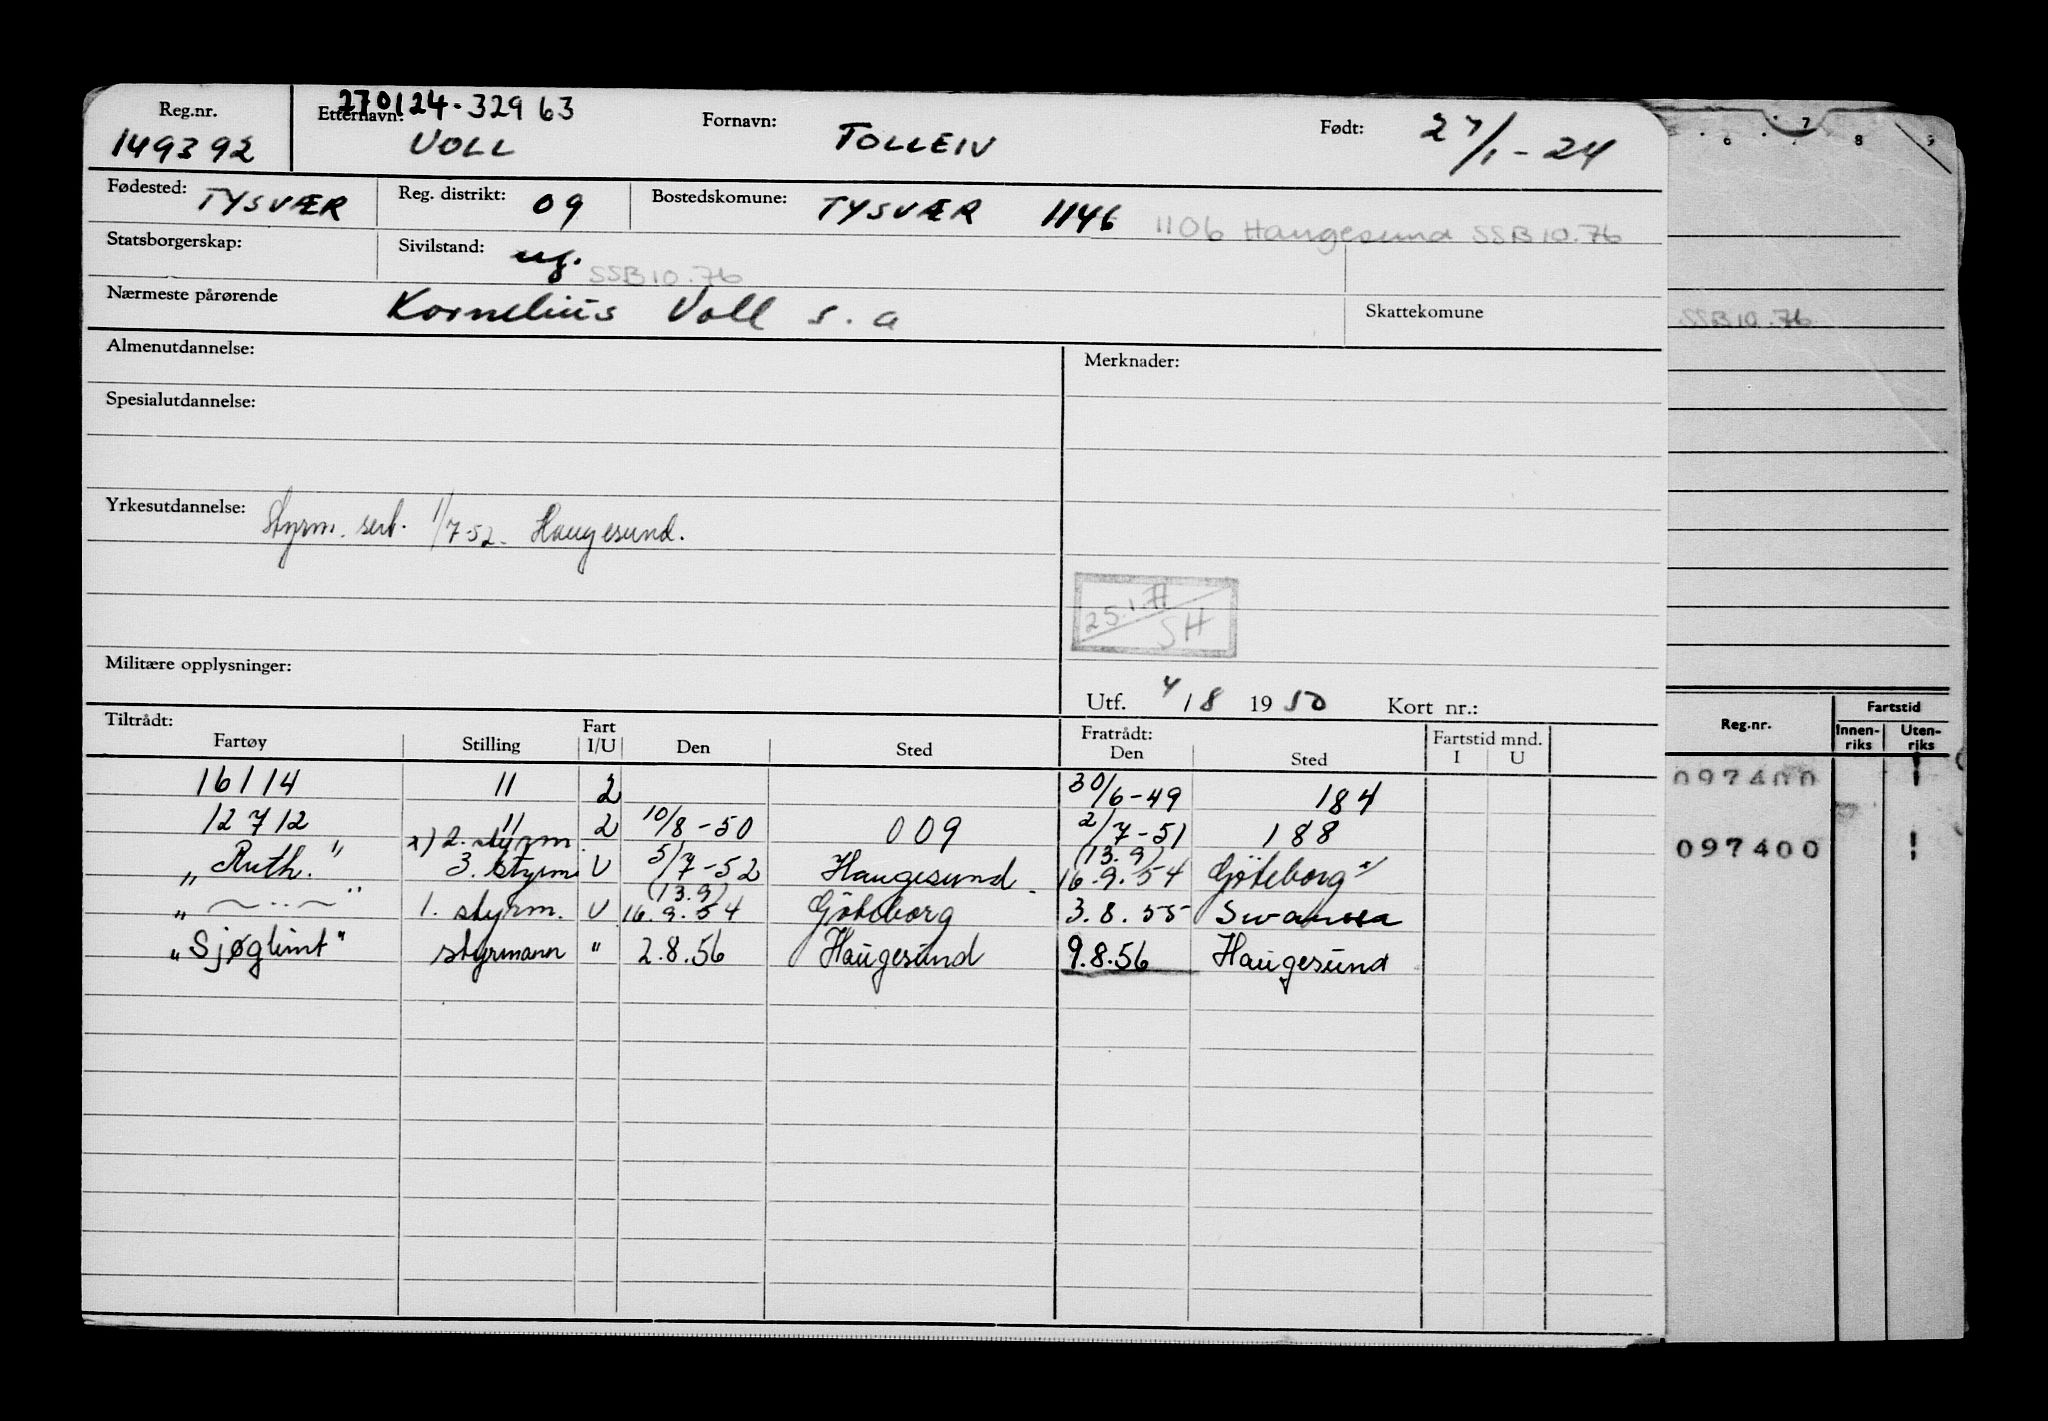 Reg.nr. 149392
270124-32963
Etternavn: VOLL Fornavn: TOLLEIV Født: 27/1-24
Fødested: TYSVÆR Reg. distrikt: 09 Bostedskomune: TYSVÆR 1146 1106 Haugesund SSB 10.76
Statsborgerskap: Sivilstand: ug. SSB 10.76
Nærmeste pårørende Kornelius Voll s.a Skattekomune
Almenutdannelse: Merknader:
Spesialutdannelse:
Yrkesutdannelse: Styrm. sert. 1/7-52. Haugesund.
25.1.71 SH
Militære opplysninger:
Utf. 4/8 1950 Kort nr.:
Tiltrådt: Fratrådt: Fartstid mnd.
Fartøy Stilling Fart I/U Den Sted Den Sted I U
16114 11 2 30/6-49 184
12712 11 2 10/8-50 009 2/7-51 188
x) 2. styrm (13.9)
"Ruth." 3. styrm U 5/7-52 Haugesund 16.9.54 Göteborg x)
(13.9)
" — .. — " 1. styrm. U 16.9.54 Göteborg 3.8.55 Swansea
"Sjøglimt" styrmann " 2.8.56 Haugesund 9.8.56 Haugesund
6 7 8 9
SSB 10.76
Reg.nr. Fartstid
Innen-riks Uten-riks
097400 !
097400 !